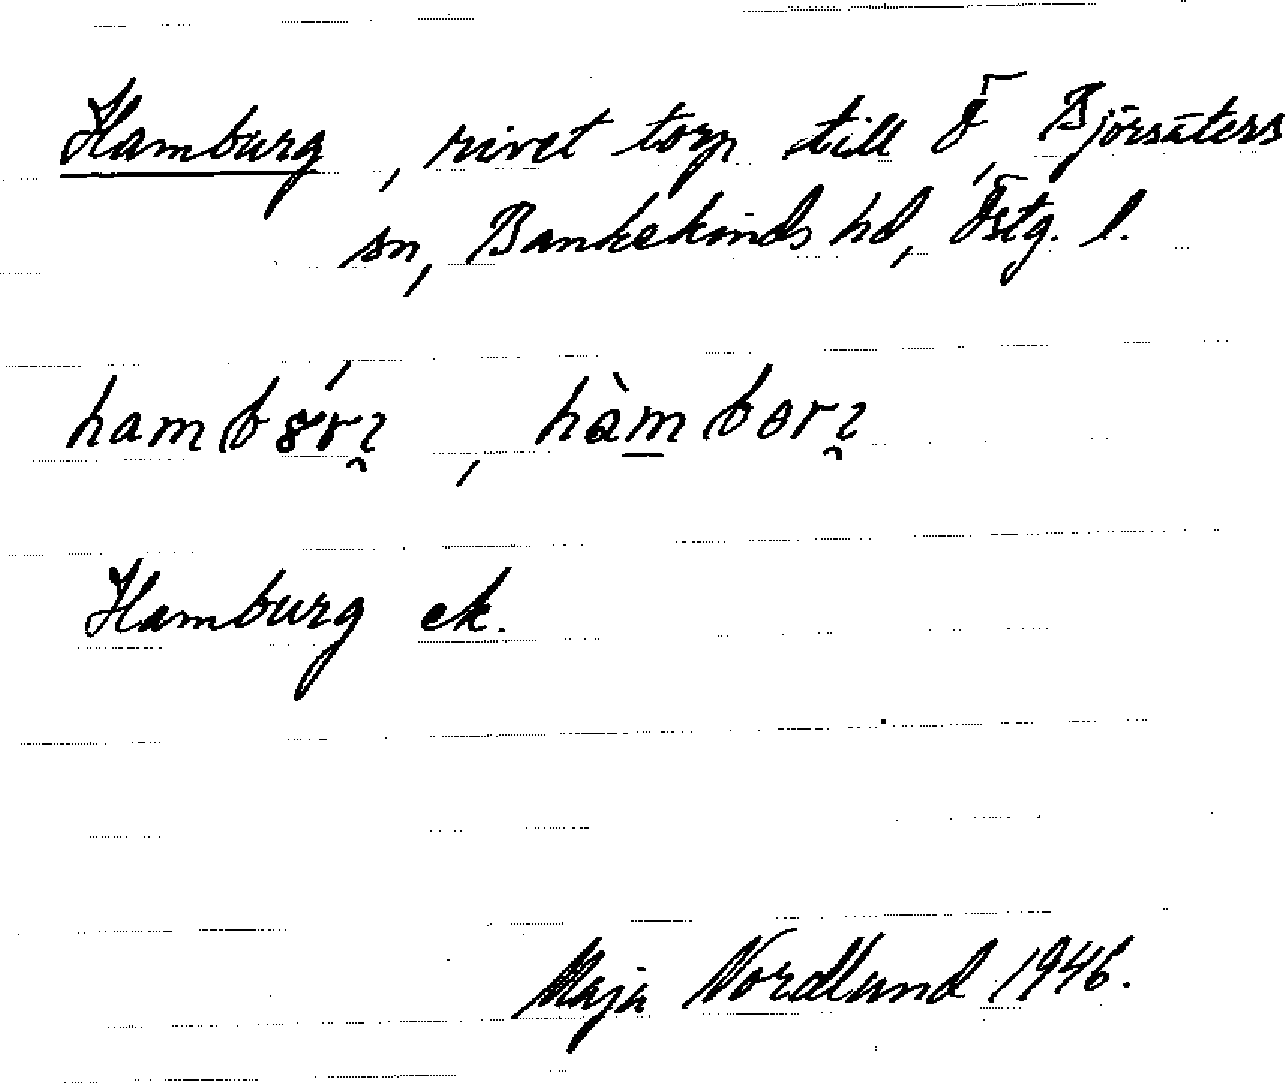 Hamburg, rivet torp till Ö, Björsäters
sn, Bankekinds hd, Östg. l.
hambỏ́rʒ̑, hàm̲borʒ̑
Hamburg ek.
Maja Nordlund 1946.